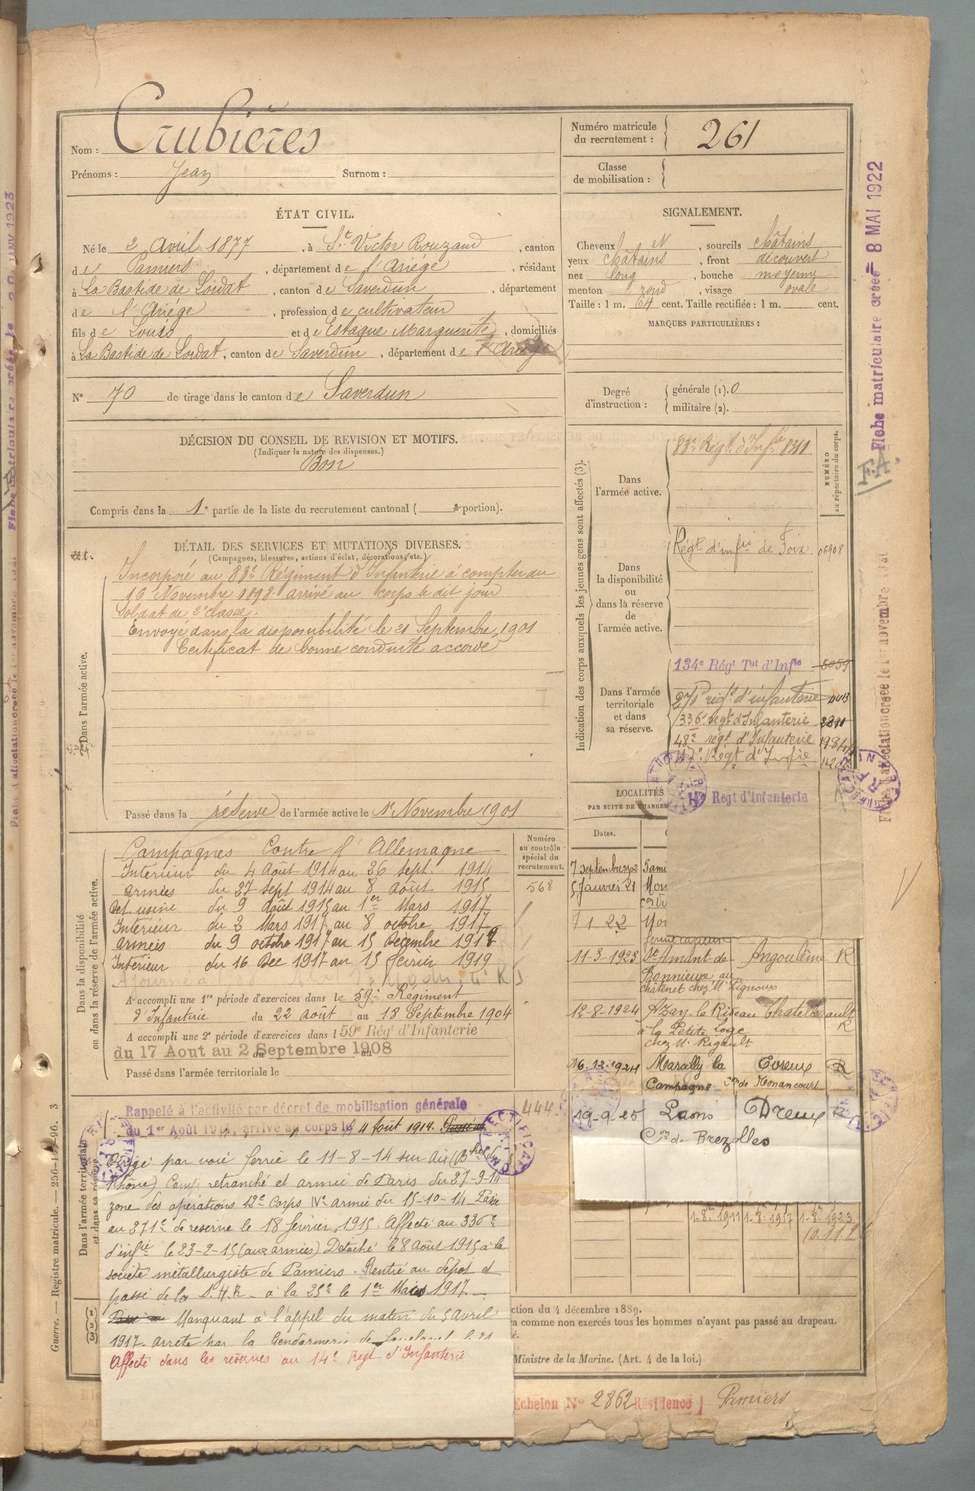 Nom : Crubières
Prénoms : Jean Surnom :
Numéro matricule du recrutement : 261
Classe de mobilisation :
ÉTAT CIVIL.
Né le 2 Avril 1877, à St Victor Rouzaud, canton
de Pamiers, département de l'Ariége, résidant
à La Bastide de Lordat, canton de Saverdun, département
de l'Ariége, profession de cultivateur
fils de Louis et de Estaque Marguerite, domiciliés
à La Bastide de Lordat, canton de Saverdun, département de l'Ariège
N° 70 de tirage dans le canton de Saverdun
SIGNALEMENT.
Cheveux N, sourcils châtains
yeux châtains, front découvert
nez long, bouche moyenne
menton rond, visage ovale
Taille : 1 m. 64 cent. Taille rectifiée : 1 m. cent.
MARQUES PARTICULIÈRES :
Degré d'instruction : générale (1). 0
militaire (2).
DÉCISION DU CONSEIL DE REVISION ET MOTIFS.
(Indiquer la nature des dispenses.)
Bon
Compris dans la 1e partie de la liste du recrutement cantonal ( portion).
DÉTAIL DES SERVICES ET MUTATIONS DIVERSES.
(Campagnes, blessures, actions d'éclat, décorations, etc.)
Dans l'armée active.
Incorporé au 83e Régiment d'Infanterie à compter du
16 Novembre 1898 arrivé au corps le dit jour
Soldat de 2e classe.
Envoyé dans la disponibilité le 21 Septembre 1901
Certificat de bonne conduite accordé
Passé dans la réserve de l'armée active le 1er Novembre 1901
Indication des corps auxquels les jeunes gens sont affectés (3).
NUMÉRO au répertoire du corps.
Dans l'armée active.
83e Régt d'Infie
Dans la disponibilité ou dans la réserve de l'armée active.
Régt d'infie de Foix
Dans l'armée territoriale et dans sa réserve.
134e Régt Tal d'Infie
271e régt d'infanterie
336e régt d'Infanterie
48e régt d'Infanterie
Régt d'Infie
Régt d'Infanterie
LOCALITÉS
PAR SUITE DE CHANGE
Dates.
5 Janvier 21
7 1 22
11-3-1923 St Amant de Bonnieure au châtenet chez Mr Pignoux Angoulême R
12-8-1924 Azay le Rideau à la Petite Loge chez Mr Regault Chatellerault R
16-12-1924 Marcilly la Campagne Cne de Nonancourt Evreux R
19-9-25 Laons Cn de Brezolles Dreux
Dans la disponibilité ou dans la réserve de l'armée active.
Numéro au contrôle spécial du recrutement.
568
Campagnes Contre l'Allemagne
Intérieur du 4 Août 1914 au 26 sept. 1914
armées du 27 sept 1914 au 8 août 1915
Det usine du 9 août 1915 au 1er Mars 1917
Intérieur du 2 Mars 1917 au 8 octobre 1917
armées du 9 octobre 1917 au 15 Décembre 1917
Intérieur du 16 Dec 1917 au 15 février 1919
A accompli une 1re période d'exercices dans le 59e Régiment
d'Infanterie du 22 août au 18 Septembre 1904
A accompli une 2e période d'exercices dans l 59e Rég d'Infanterie
du 17 Aout au 2 Septembre 1908
Passé dans l'armée territoriale le
Dans l'armée territoriale
444
Rappelé à l'activité par décret de mobilisation générale
du 1er Août 1914, arrivé au corps le 4 août 1914.
Dirigé par voie ferrée le 11-8-14 sur Aix (Bches du
Rhône) Camp retranché et armée de Paris du 27-9-14
zone des opérations 12e Corps IVe armée du 15-10-14 Passé
au 271e de réserve le 18 février 1915. Affecté au 336e
d'infie le 23-2-15 (aux armées) Détaché le 8 Août 1915 à la
société métallurgiste de Pamiers. Rentré au dépôt et
passé de la S.H.R. à la 25e le 1er Mars 1917.
Manquant à l'appel du matin du 5 Avril
1917. arrêté par la Gendarmerie de
Affecté dans les réserves au 14e Régt d'Infanterie
1-8-1917
1-8-1923
ction du 4 décembre 1889.
a comme non exercés tous les hommes n'ayant pas passé au drapeau.
Ministre de la Marine. (Art. 4 de la loi.)
Echelon N° 2862 Résidence Pamiers
Guerre. — Registre matricule.
Fiche matriculaire créée — 8 MAI 1922
F.A.